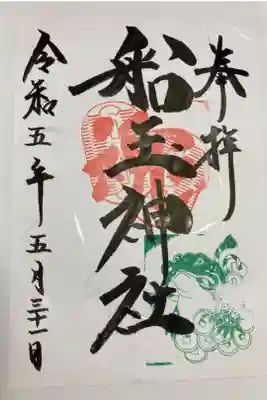 奉拝
船玉神社
令和五年五月三十一日